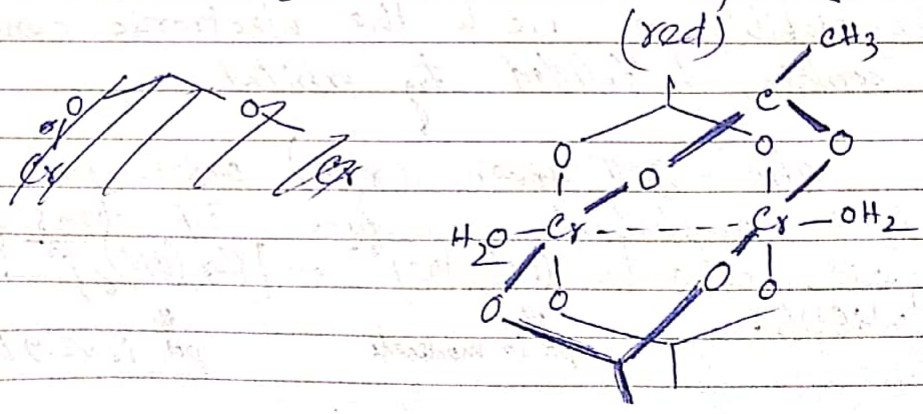 (red)
CH3
C
O O
O O
H2O-Cr-----Cr-OH2
O O O O